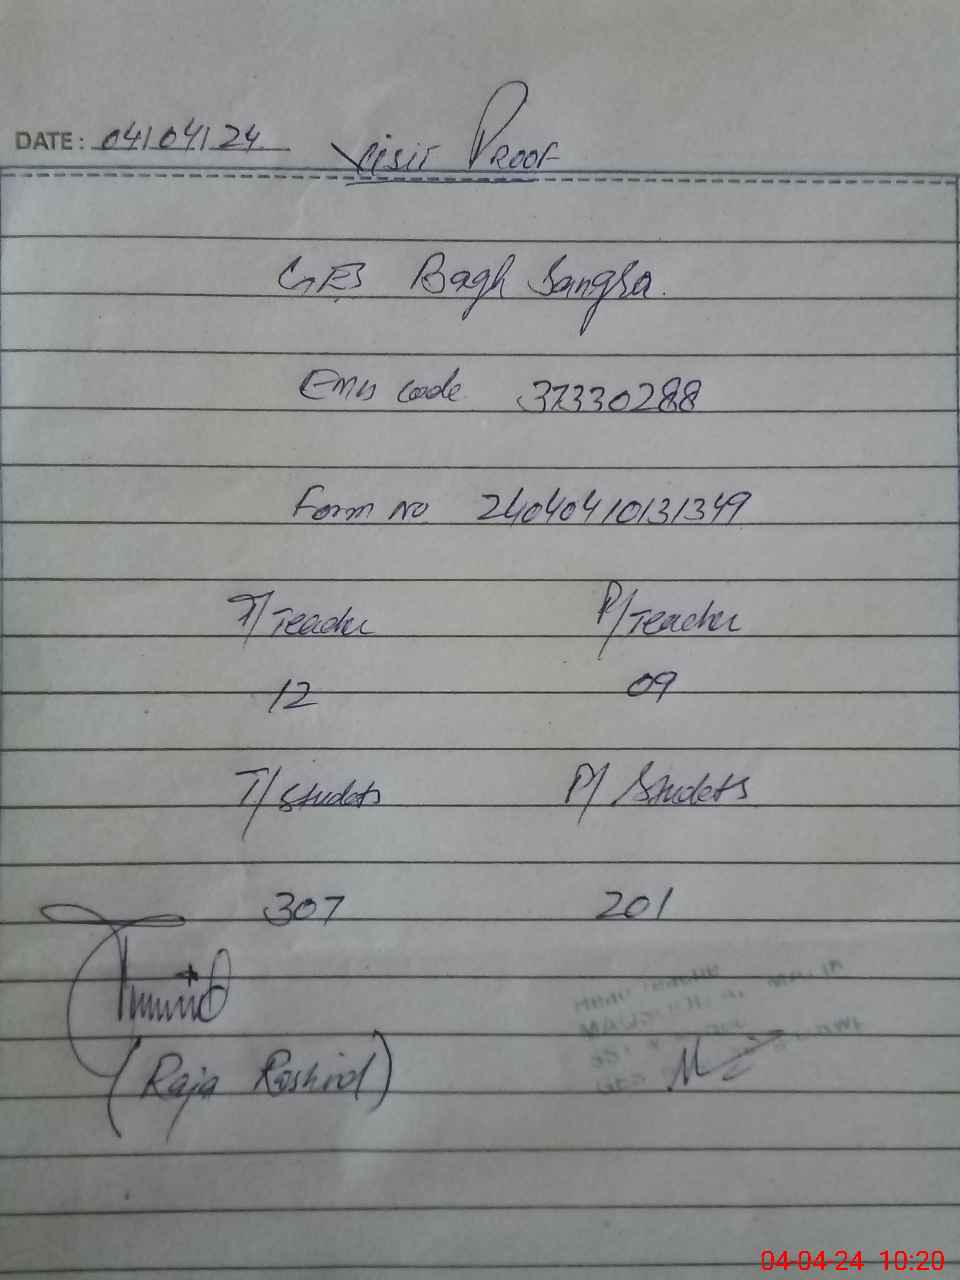 DATE: 04/04/24 Visit Proof
GES Bagh Sangra.
Emis code 37330288
Form no 24040410131349
T/Teacher P/Teacher
12 09
T/Students P/Students
307 201
(Raja Rashid)
04-04-24 10:20